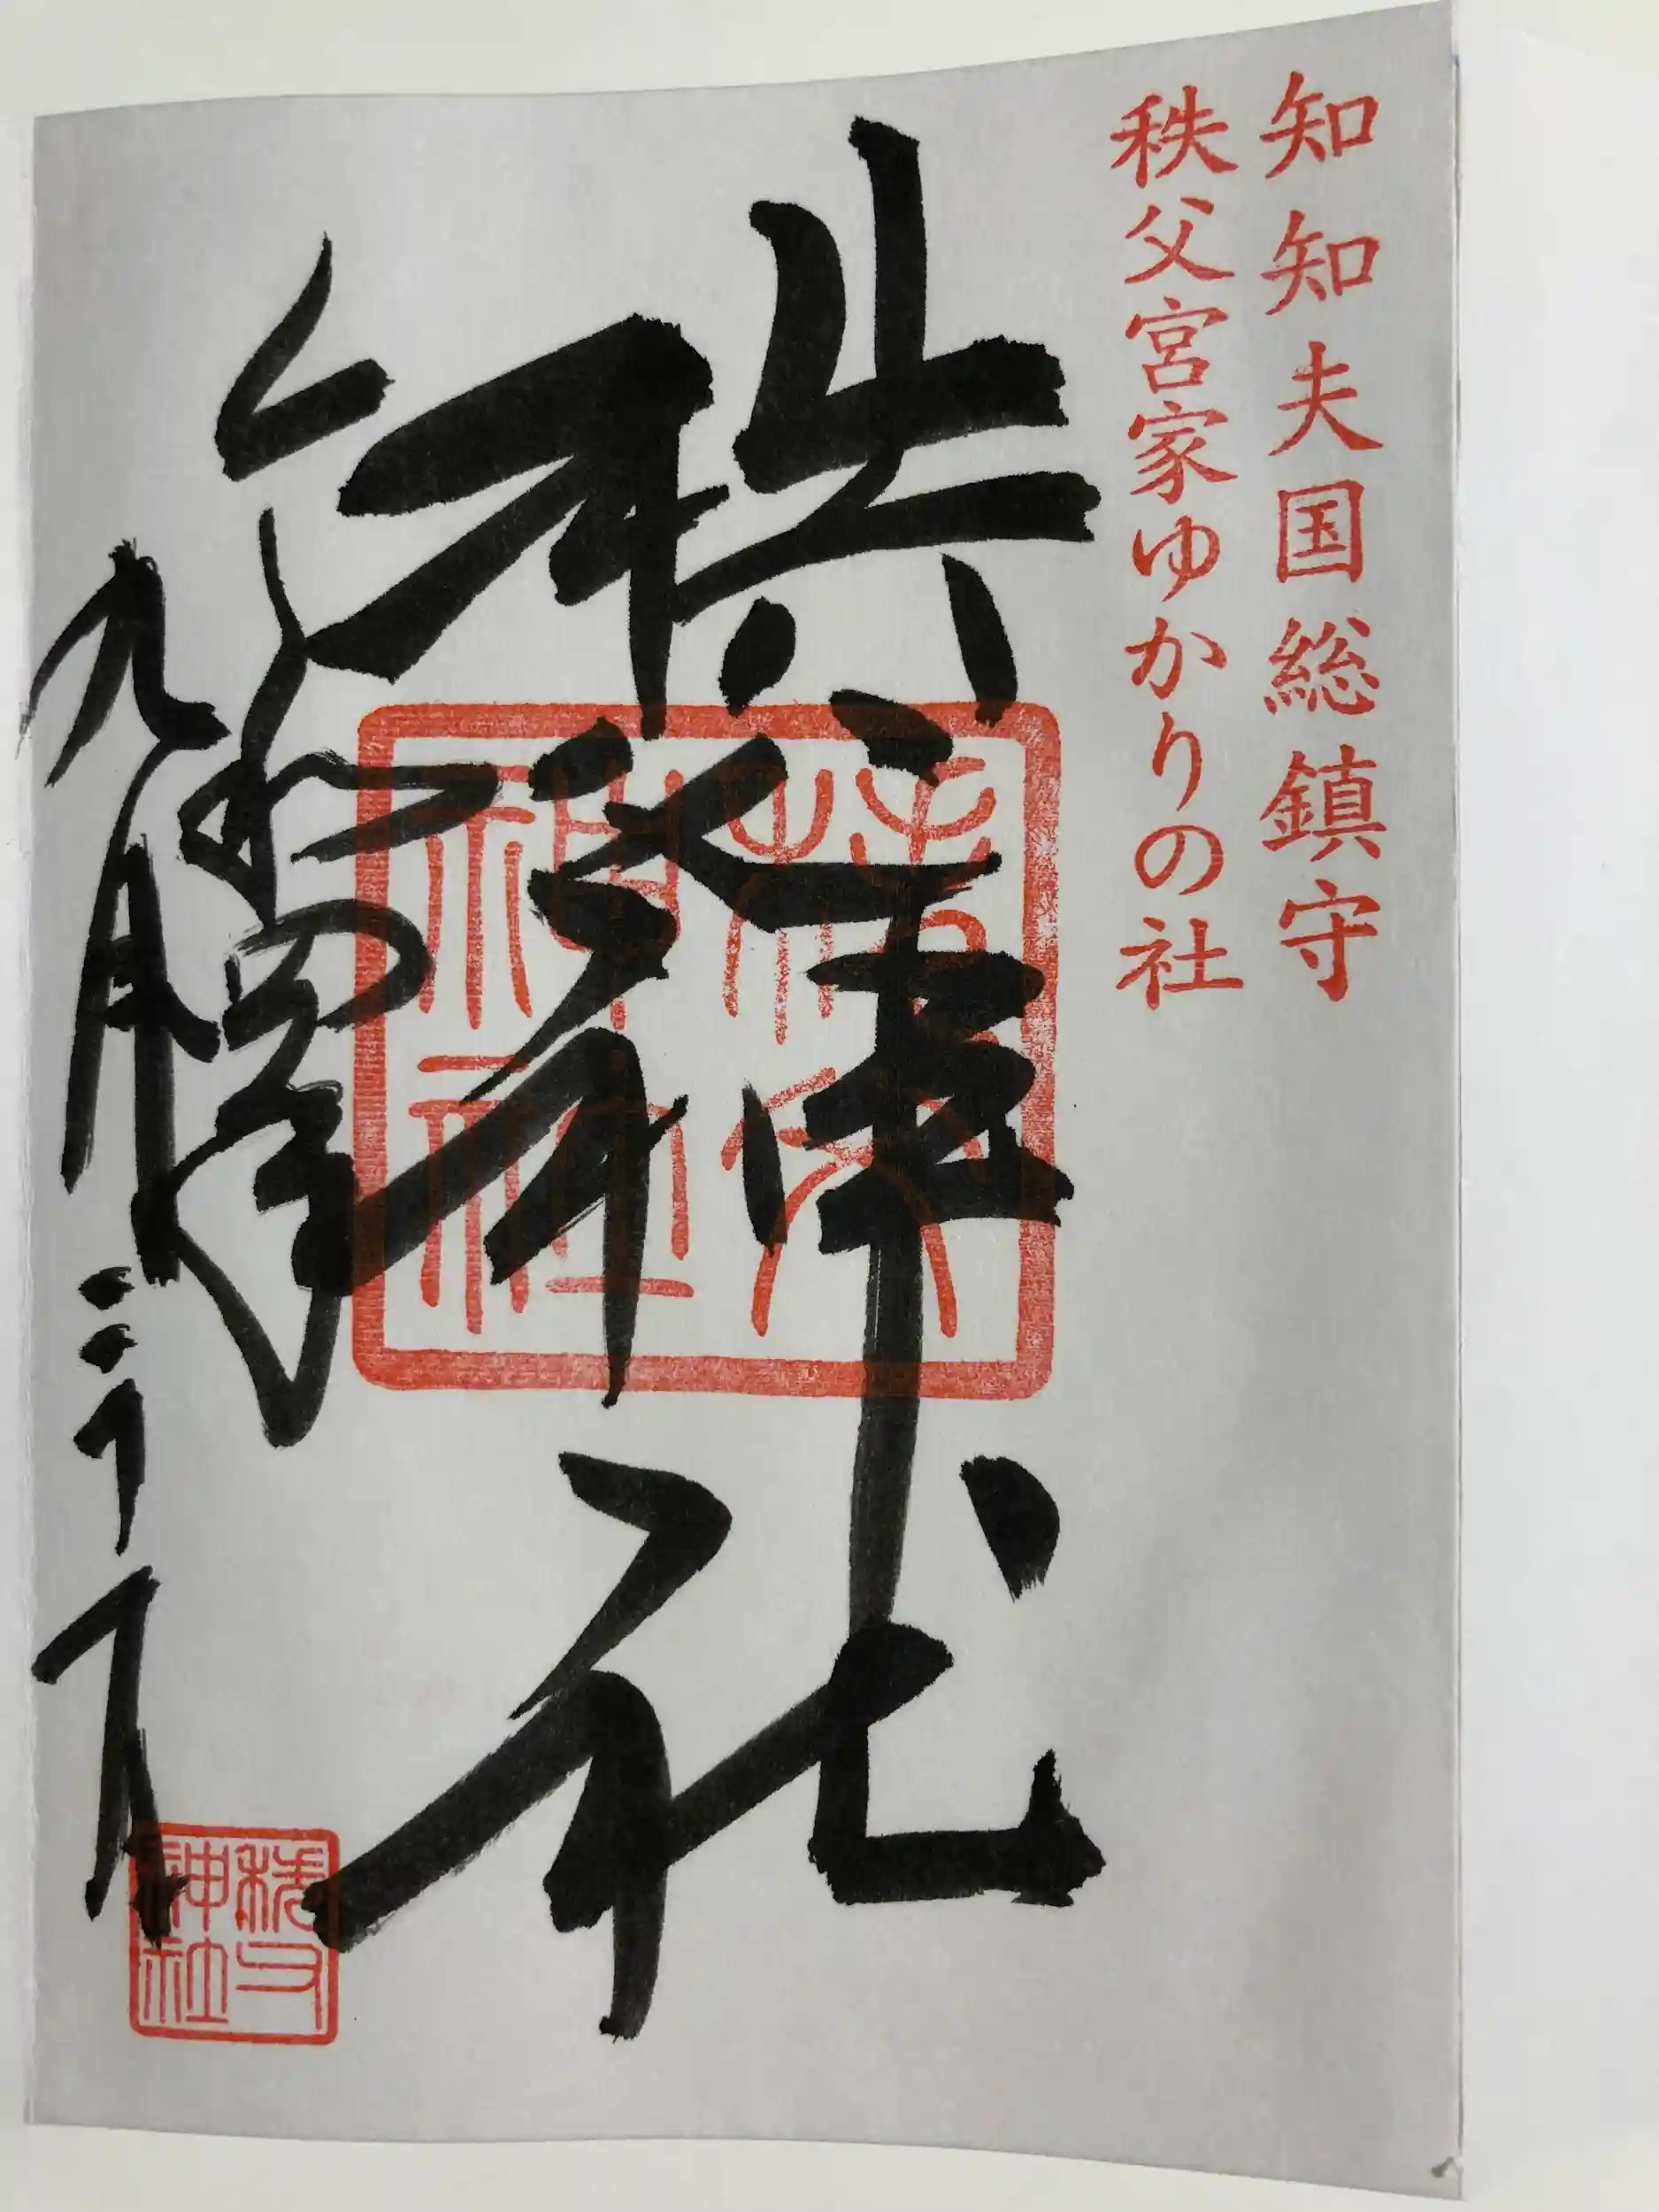 知知夫国総鎮守
秩父宮家ゆかりの社
秩父神社
秩父神社
令和四年
九月
秩父神社